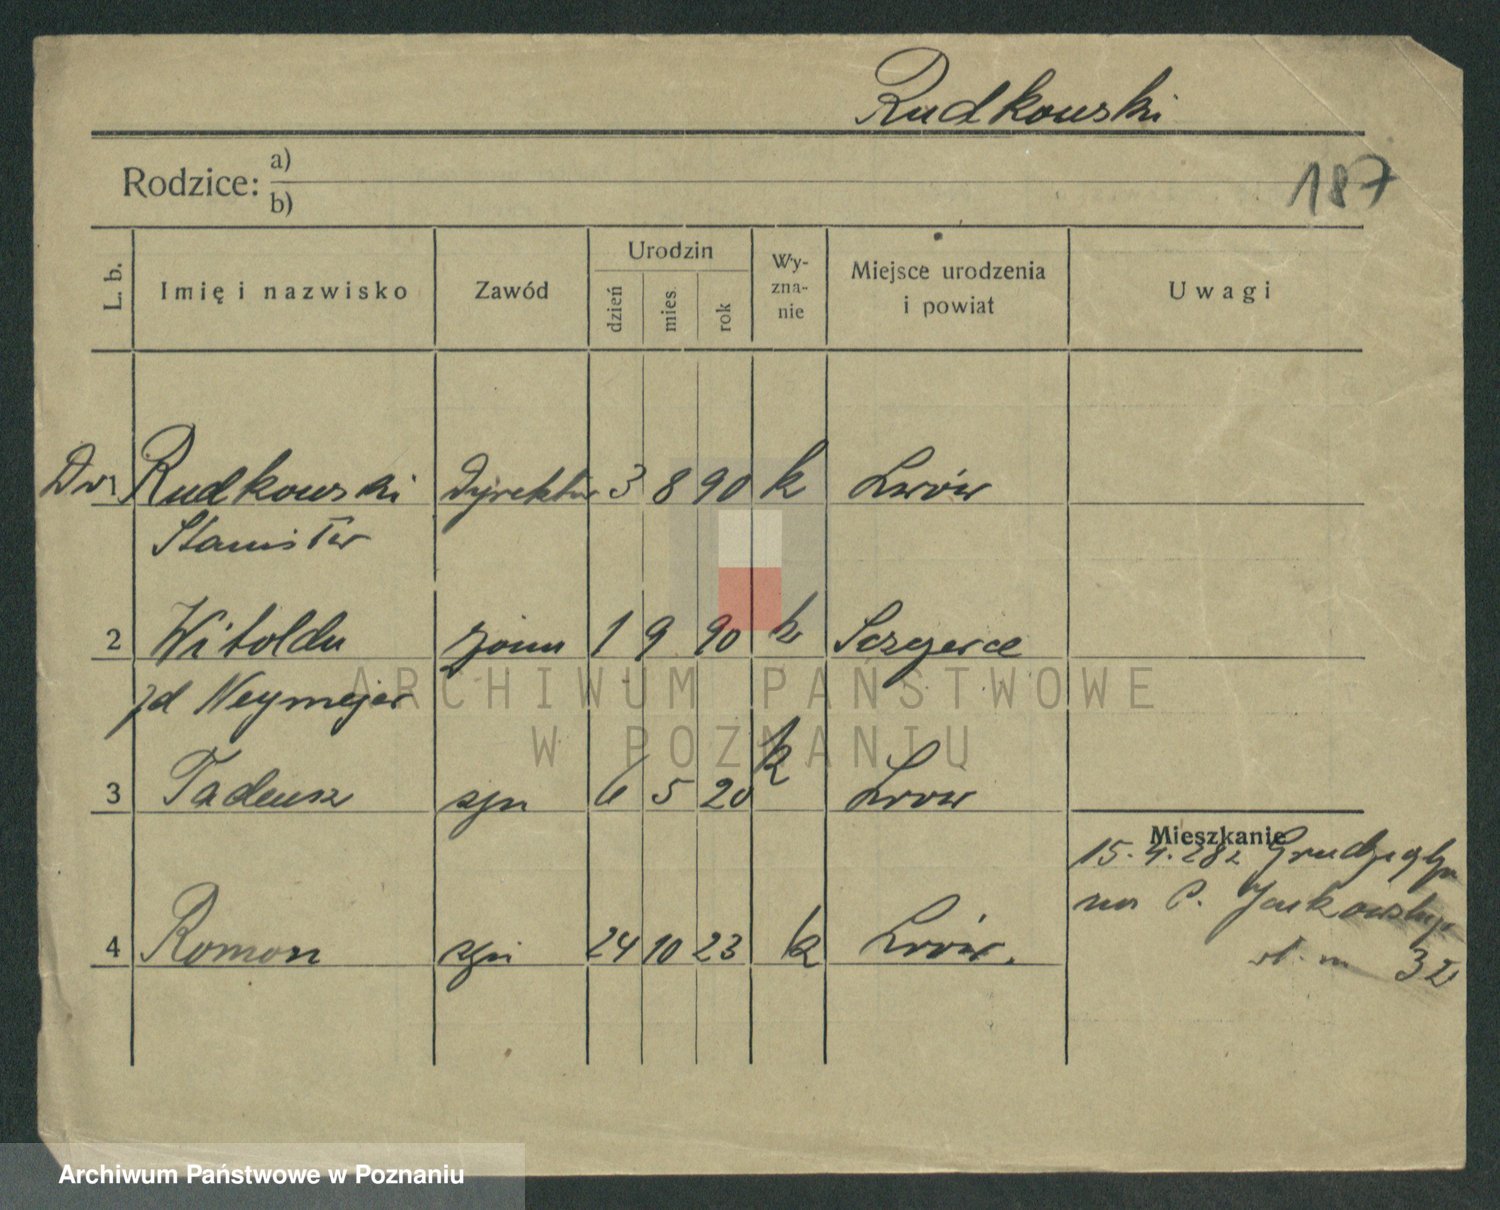 Rudkowski
Rodzice: a)
b)
187
L. b. Imię i nazwisko Zawód Urodzin dzień mies. rok Wyznanie Miejsce urodzenia i powiat Uwagi
Dr Rudkowski Dyrektor 3 8 90 k Lwów
Stanisław
2 Witolda żona 1 9 90 k Szczerce
zd Neymejer
3 Tadeusz syn 6 5 20 k Lwów
Mieszkanie
15. 4. 282 Grudziądz
na P. Jackowskiego
3
4 Roman syn 24 10 23 k Lwów.
ARCHIWUM PAŃSTWOWE
W POZNANIU
Archiwum Państwowe w Poznaniu